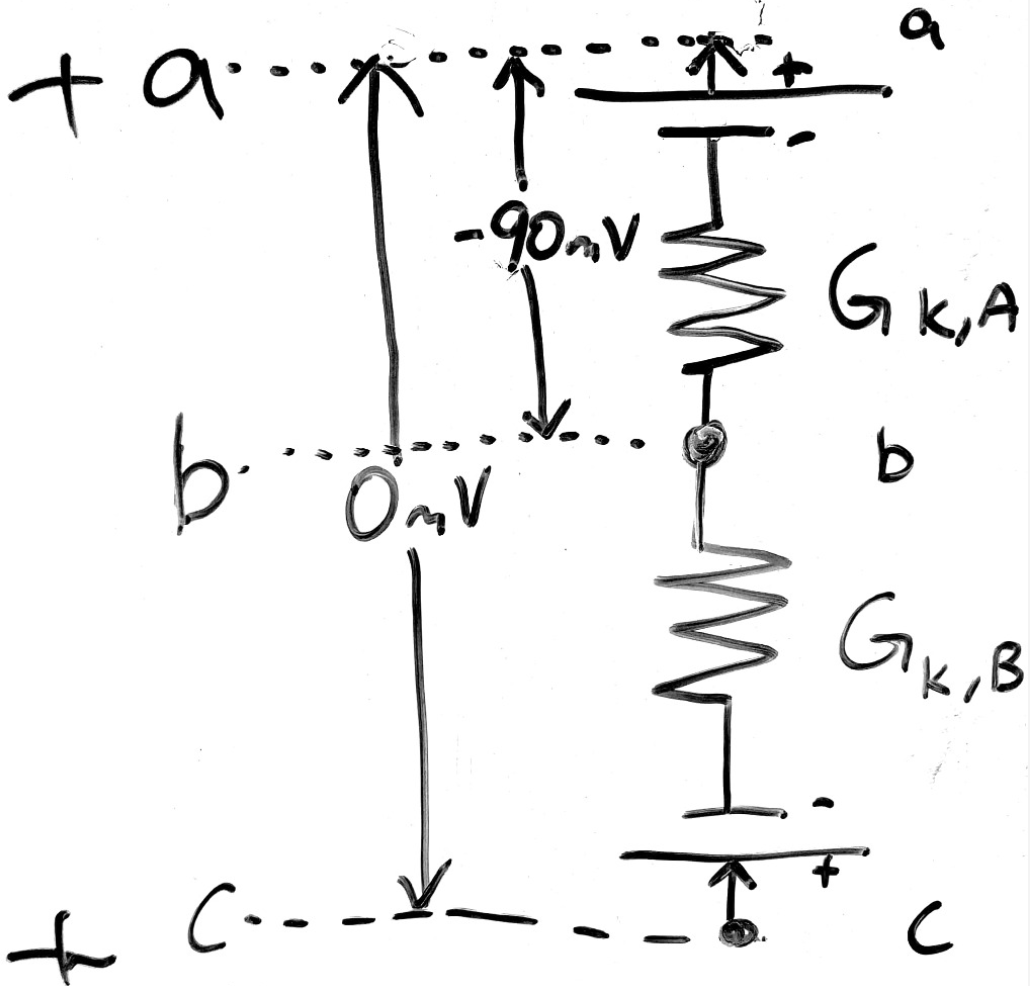 a
+ a
+
-
-90mV
G K,A
b
b
0mV
G K,B
-
+
+ c
c